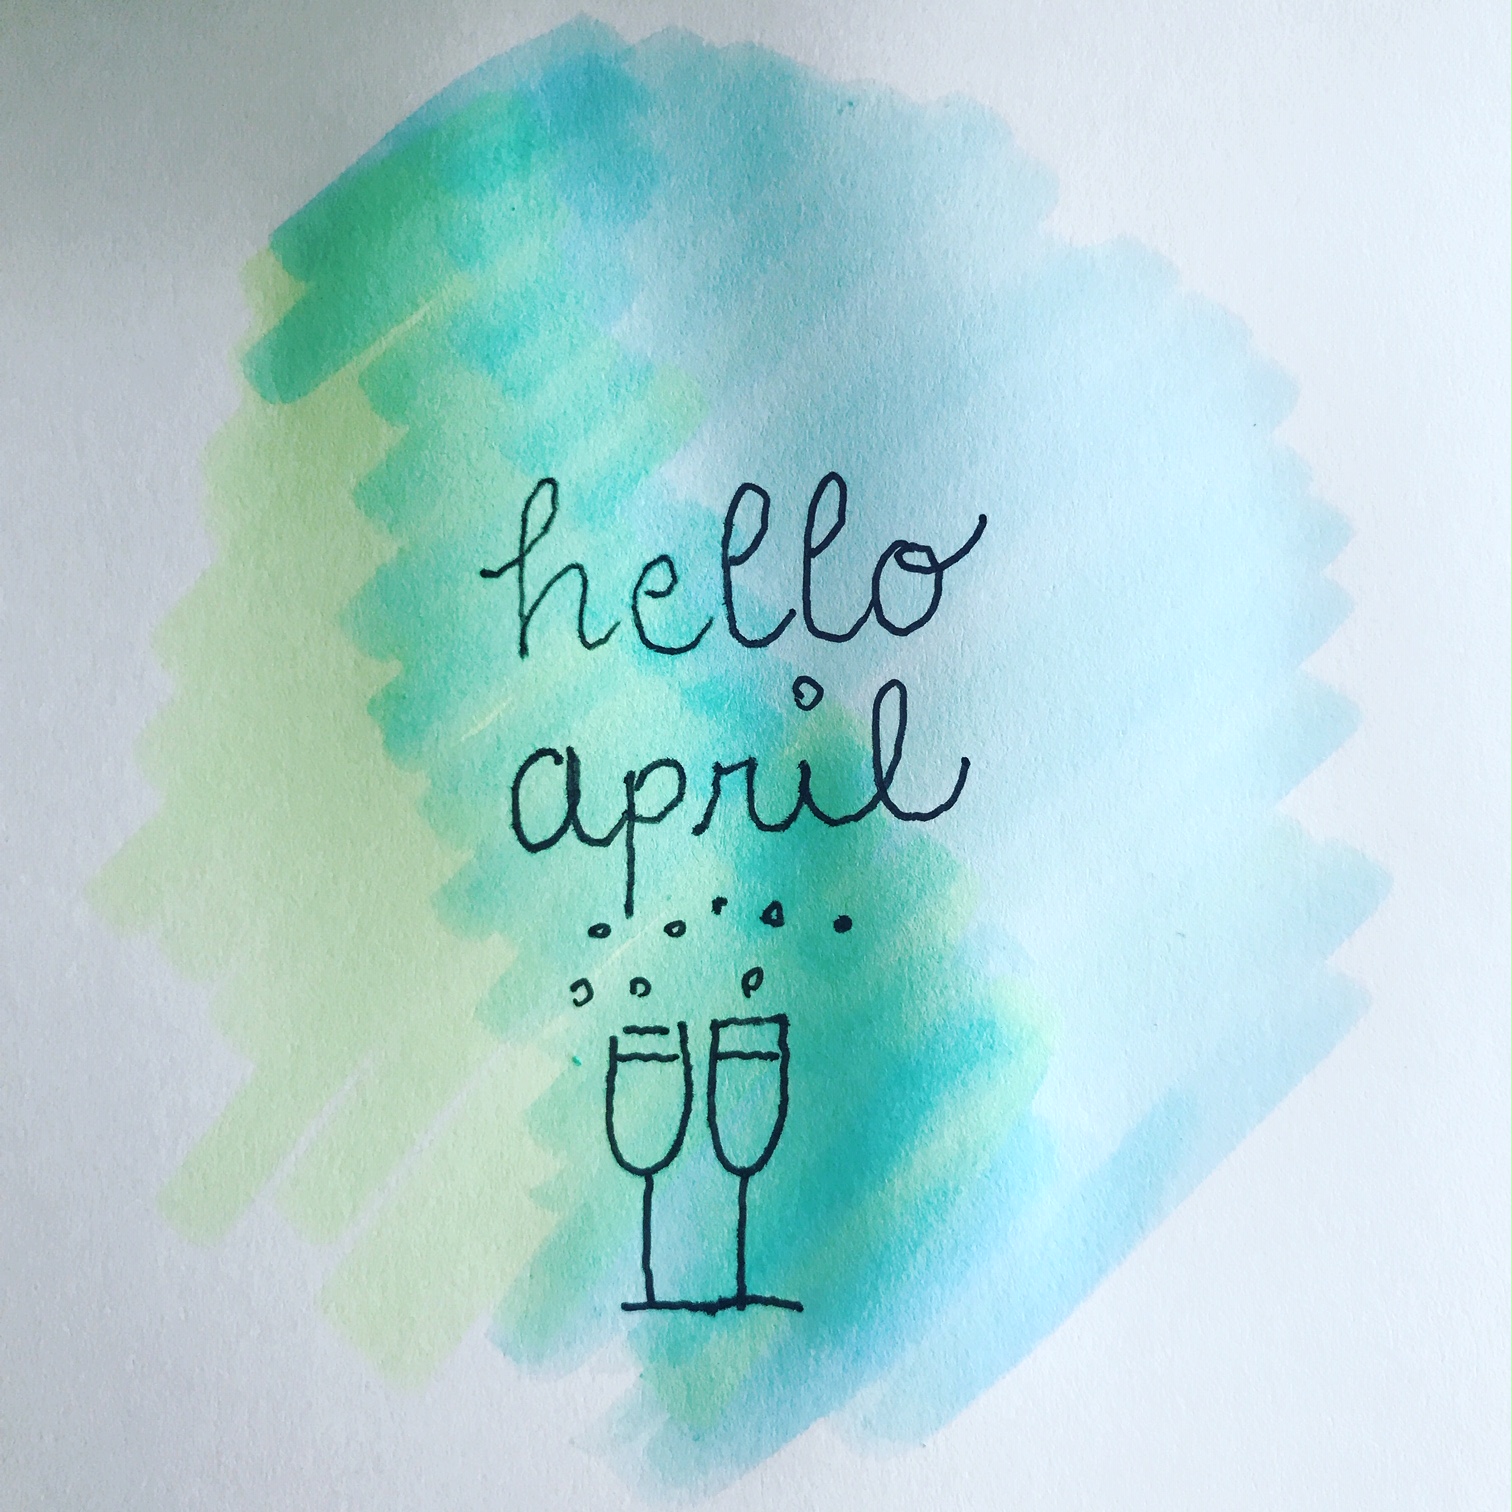 hello
april